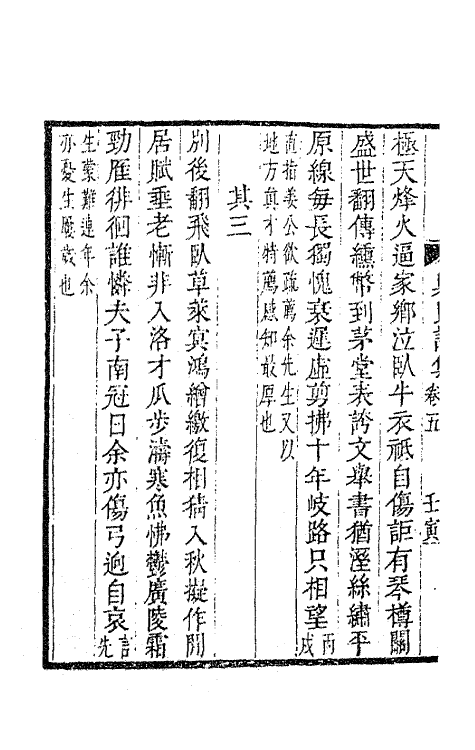 卷五
壬寅
極天烽火逼家鄉泣臥牛衣祇自傷詎有琴樽關
盛世翻傳纁幣到茅堂表誇文舉書猶溼絲繡平
原線每長獨愧衰遲虛剪拂十年岐路只相望丙戌
直指姜公欲疏薦余先生又以
地方真才特薦感知最厚也
其三
別後翻飛臥草萊冥鴻繒繳復相猜入秋擬作閒
居賦垂老慚非入洛才瓜步濤寒魚怫鬱廣陵霜
勁雁徘徊誰憐夫子南冠日余亦傷弓迥自哀言先
生蒙難連年余
亦憂生屢歲也